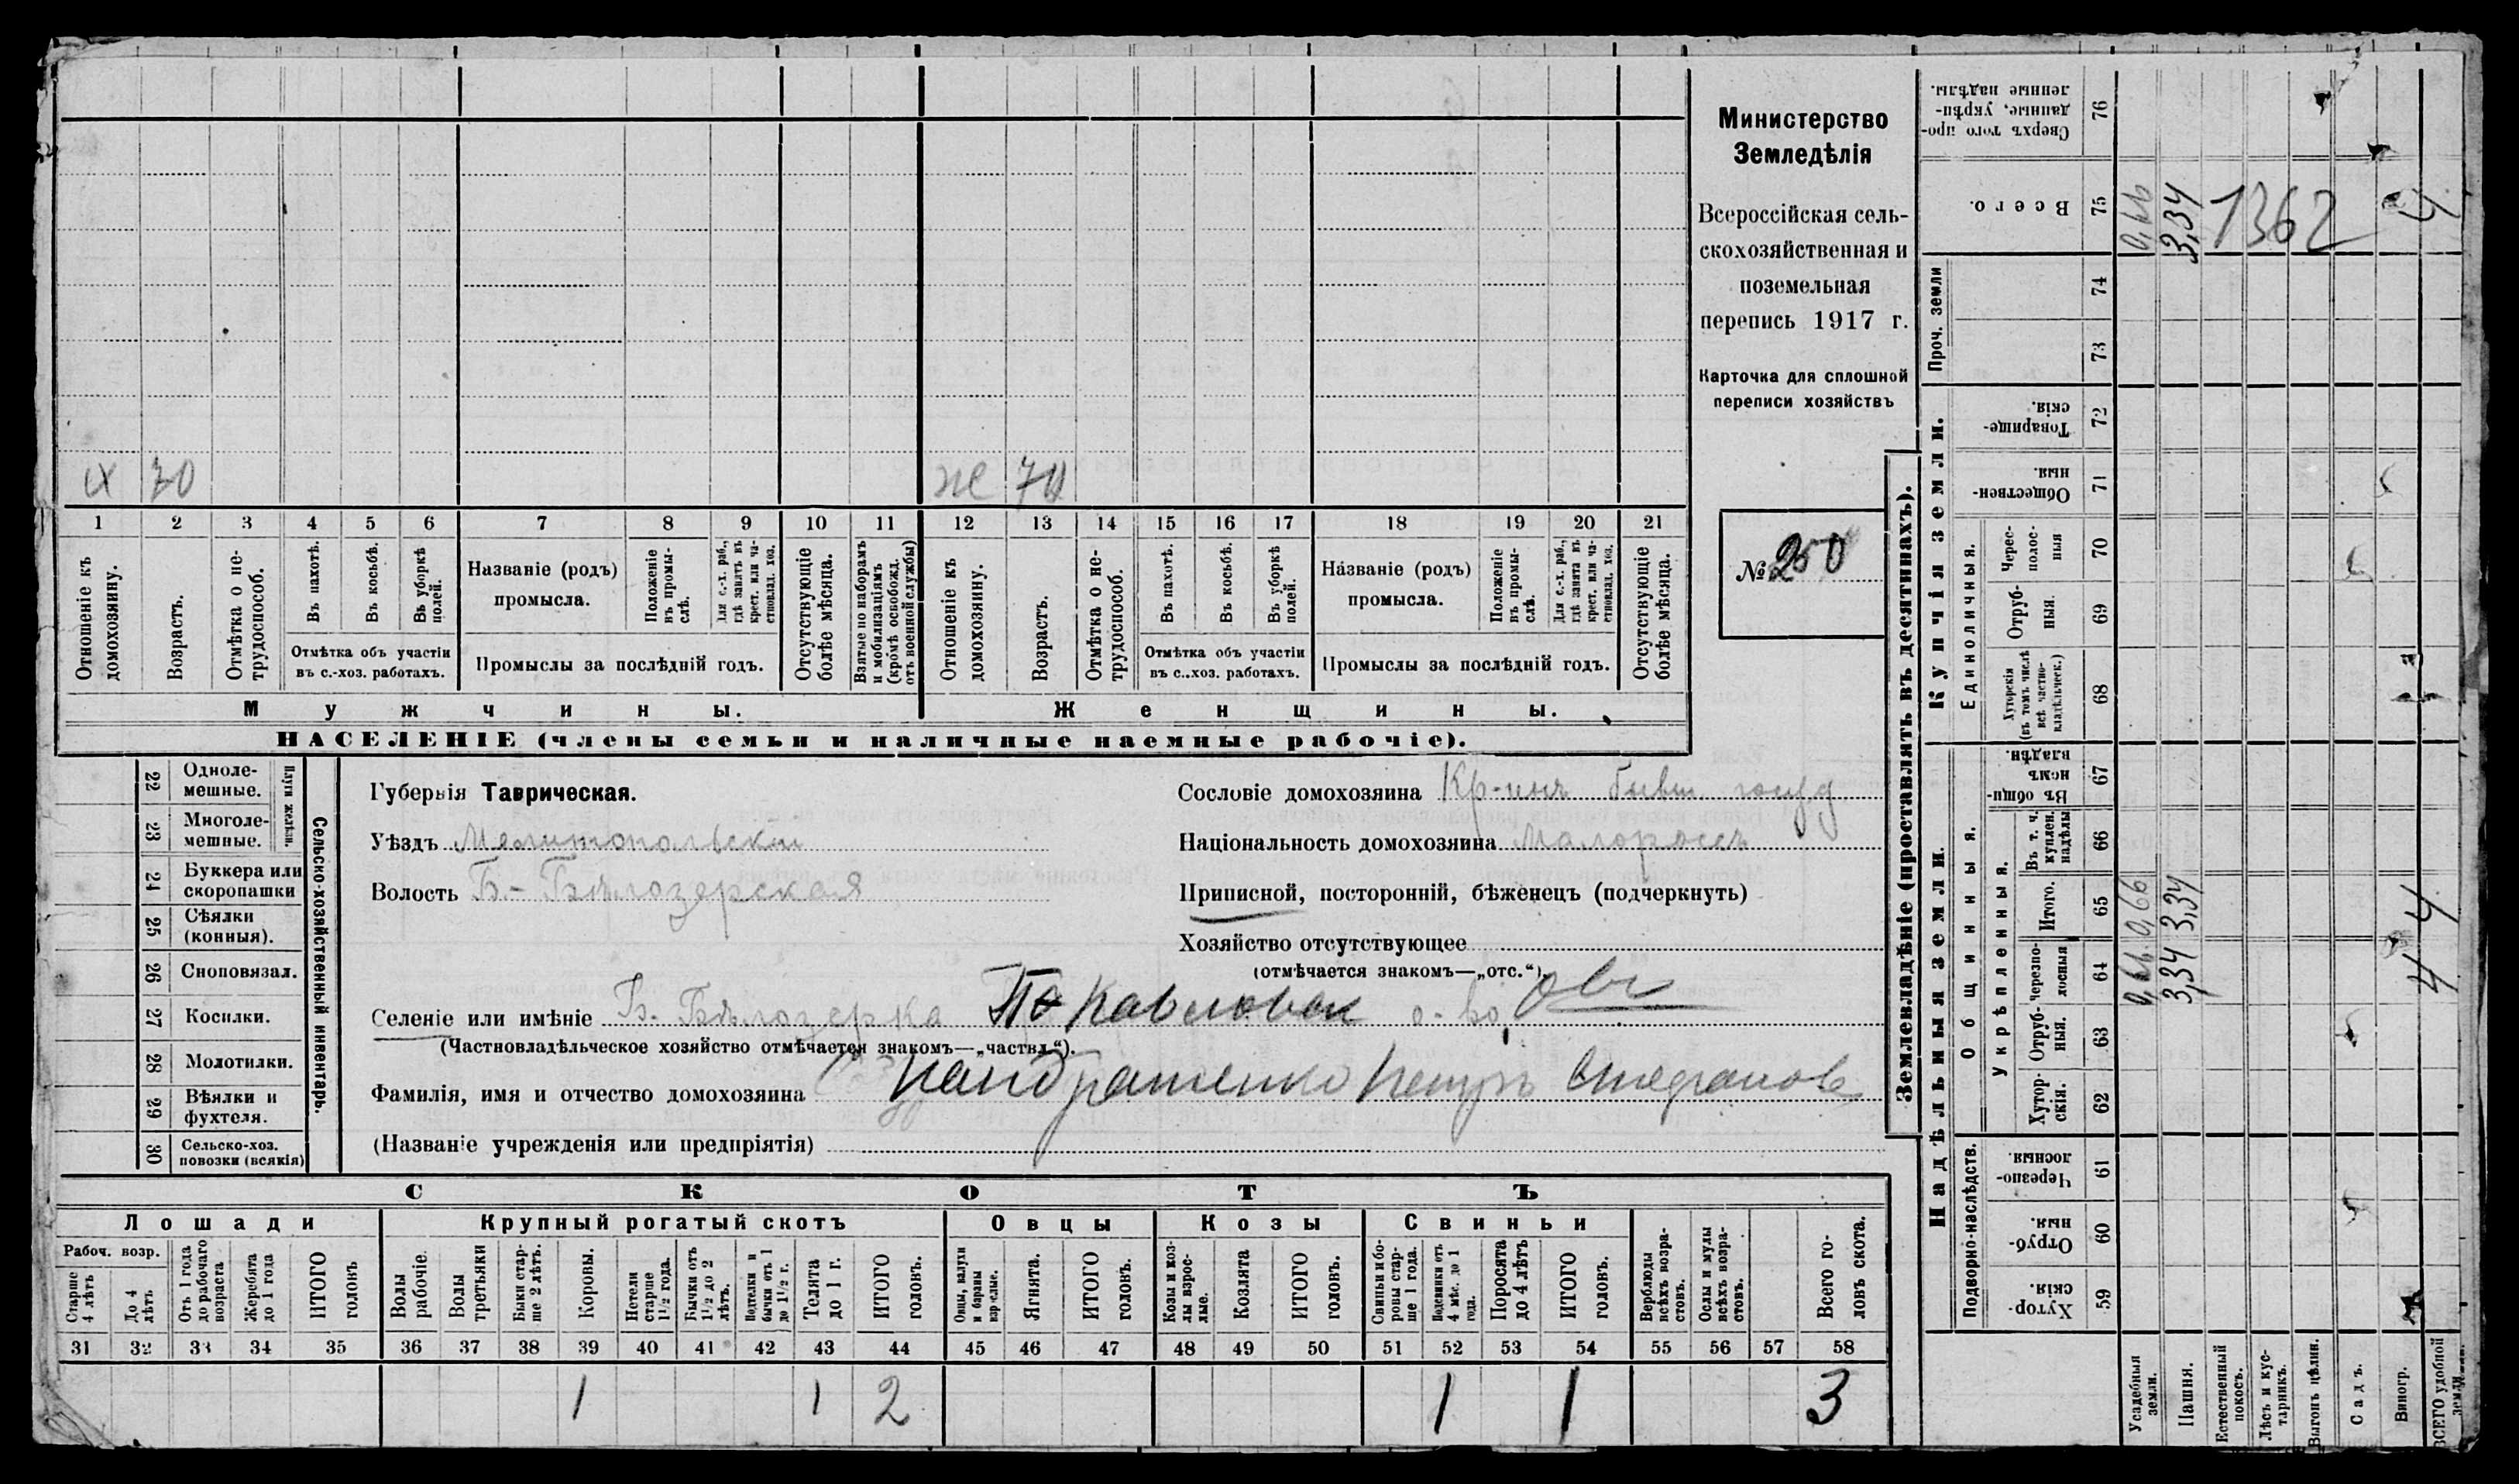 Министерство
Земледѣлія
Всероссійская сель-
скохозяйственная и
поземельная
перепись 1917 г.
Карточка для сплошной
переписи хозяйствъ
№ 250
х 70
же 70
1 2 3 4 5 6 7 8 9 10 11 12 13 14 15 16 17 18 19 20 21
Отношеніе къ домохозяину.
Возрастъ.
Отмѣтка о не-трудоспособ.
Въ пахотѣ.
Въ косьбѣ.
Въ уборкѣ полей.
Отмѣтка объ участіи
въ с.-хоз. работахъ.
Названіе (родъ)
промысла.
Положеніе въ промы-слѣ.
Для с.-х. раб., гдѣ занятъ въ крест. или ча-стновлад. хоз.
Промыслы за послѣдній годъ.
Отсутствующіе болѣе мѣсяца.
Взятые по наборамъ и мобилизаціямъ (кромѣ освобожд. отъ военной службы)
Отношеніе къ домохозяину.
Возрастъ.
Отмѣтка о не-трудоспособ.
Въ пахотѣ.
Въ косьбѣ.
Въ уборкѣ полей.
Отмѣтка объ участіи
въ с.-хоз. работахъ.
Названіе (родъ)
промысла.
Положеніе въ промы-слѣ.
Для с.-х. раб., гдѣ занята въ крест. или ча-стновлад. хоз.
Промыслы за послѣдній годъ.
Отсутствующіе болѣе мѣсяца.
Мужчины.
Женщины.
НАСЕЛЕНІЕ (члены семьи и наличные наемные рабочіе).
22 Одноле-мешные.
23 Многоле-мешные.
Плуги желѣзн.
24 Буккера или скоропашки
25 Сѣялки (конныя).
26 Сноповязал.
27 Косилки.
28 Молотилки.
29 Вѣялки и фухтеля.
30 Сельско-хоз. повозки (всякія)
Сельско-хозяйственный инвентарь.
Губернія Таврическая.
Уѣздъ Мелитопольскій
Волость Б.-Бѣлозерская
Сословіе домохозяина Кр-инъ бывш. госуд
Національность домохозяина Малороссъ
Приписной, посторонній, бѣженецъ (подчеркнуть)
Хозяйство отсутствующее
(отмѣчается знакомъ—„отс.“).
Селеніе или имѣніе Б. Бѣлозерка о-во
(Частновладѣльческое хозяйство отмѣчается знакомъ—„частвл.“).
Фамилія, имя и отчество домохозяина Петръ Стефанов
(Названіе учрежденія или предпріятія)
СКОТЪ
Лошади
Крупный рогатый скотъ
Овцы
Козы
Свиньи
Рабоч. возр.
Старше 4 лѣтъ
До 4 лѣтъ
Отъ 1 года до рабочаго возраста
Жеребята до 1 года
ИТОГО головъ
Волы рабочіе.
Волы третьяки
Быки стар-ше 2 лѣтъ.
Коровы.
Нетели старше 1½ года.
Бычки отъ 1½ до 2 лѣтъ.
Подтелки и бычки отъ 1 до 1½ г.
Телята до 1 г.
ИТОГО головъ.
Овцы, валухи и бараны взрослые.
Ягнята.
ИТОГО головъ.
Козы и коз-лы взрос-лые.
Козлята
ИТОГО головъ.
Свиньи и бо-ровы стар-ше 1 года.
Подсвинки отъ 4 мѣс. до 1 года.
Поросята до 4 лѣтъ
ИТОГО головъ.
Верблюды всѣхъ возра-стовъ.
Ослы и мулы всѣхъ возра-стовъ.
Всего го-ловъ скота.
31 32 33 34 35 36 37 38 39 40 41 42 43 44 45 46 47 48 49 50 51 52 53 54 55 56 57 58
1 1 2 1 1 3
Землевладѣніе (проставлять въ десятинахъ).
Надѣльныя земли.
Купчія земли.
Проч. земли
Подворно-наслѣдств.
Общинныя.
Укрѣпленныя.
Единоличныя.
Сверхъ того про-данные, укрѣп-ленные надѣлы. 76
Всего. 75
74
73
Товарище-скія. 72
Обществен-ныя. 71
Черес-полос-ныя 70
Отруб-ныя. 69
Хуторскія (въ томъ числѣ всѣ частно-владѣльческ.) 68
Въ общи-номъ владѣн. 67
Въ т. ч. куплен. надѣлы 66
Итого. 65
Черезпо-лосныя 64
Отруб-ныя. 63
Хутор-скія. 62
Черезпо-лосныя. 61
Отруб-ныя. 60
Хутор-скія. 59
Усадебныя земли.
Пашня.
Естественный покосъ.
Лѣсъ и кус-тарникъ.
Выгонъ цѣлин.
Садъ.
Виногр.
ВСЕГО удобной земли
0,66
3,34
1362
4
0,66 0,66
3,34 3,34
4 4